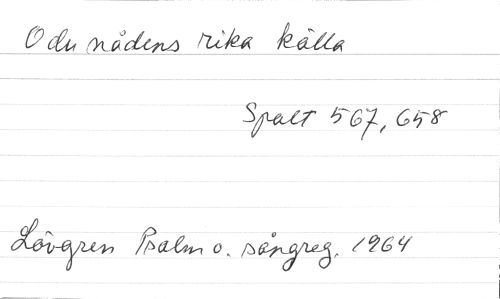 O du nådens rika källa
Spalt 567, 658
Lövgren Psalm o. sångreg. 1964